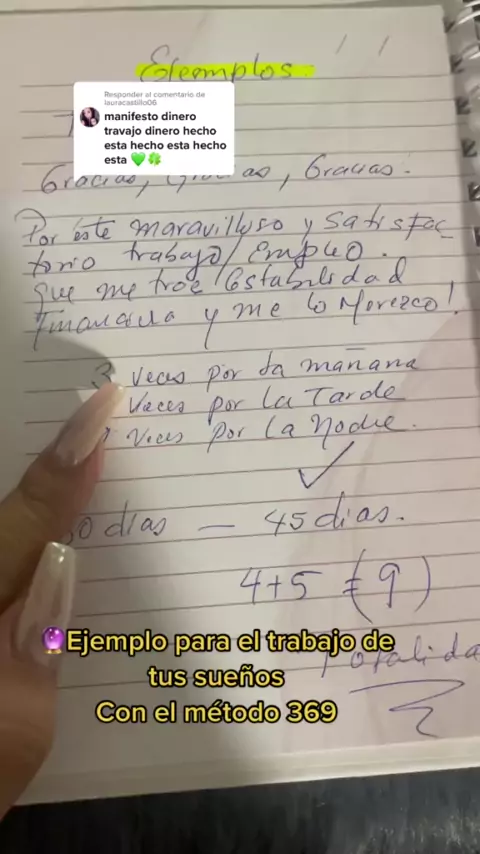 Ejemplos.
Responder al comentario de
lauracastillo06
manifesto dinero
travajo dinero hecho
esta hecho esta hecho
esta 💚🍀
Gracias, as, Gracias.
Por este maravilloso y Satisfac
torio trabajo/Empleo.
que me trae Estabilidad
Financiera y me lo Merezco!
3 veces por la mañana
Veces por la Tarde
Veces por la noche.
0 días — 45 días.
4+5 = (9)
🔮Ejemplo para el trabajo de
tus sueños
Con el método 369